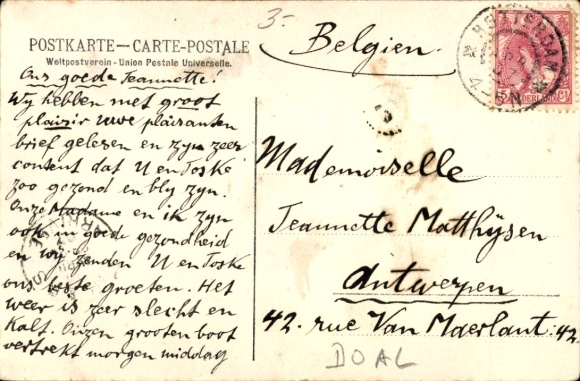 3-
POSTKARTE — CARTE-POSTALE
Weltpostverein - Union Postale Universelle.
Belgien.
Ons goede Jeannette!
Wy hebben met groot
plaizir uwe plaisanten
brief gelezen en zyn zeer
content dat U en Toske
zoo gezond en bly zyn.
Onze Madame en ik zyn
ook in goede gezondheid
en wy zenden U en Toske
ons beste groeten. Het
weer is zeer slecht en
Kalt. Onzen grooten boot
vertrekt morgen middag
Mademoiselle
Jeannette Matthÿsen
Antwerpen
42. rue Van Maerlant: 42.
DOAL
ROTTERDAM
4-8 N
5 NEDERLAND CT